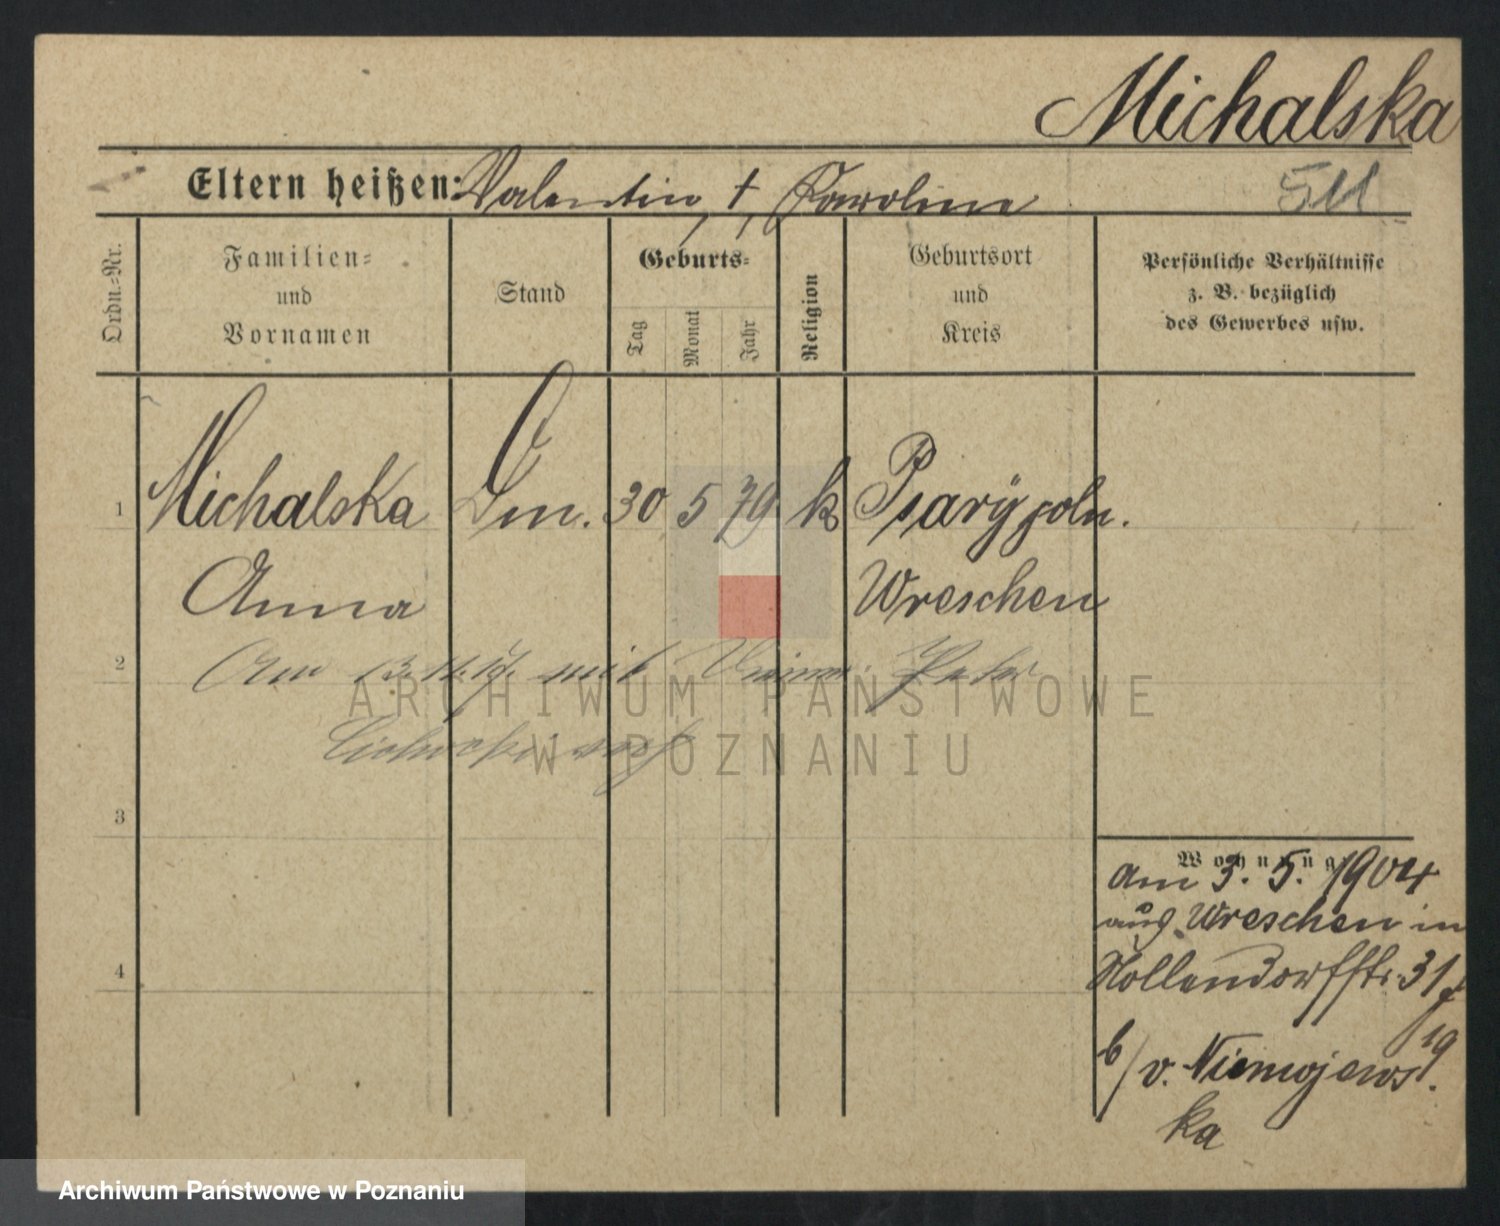 Michalska
Eltern heißen: Valentin, † Karoline
511
Ordn.-Nr.
Familien-
und
Vornamen
Stand
Geburts-
Tag
Monat
Jahr
Religion
Geburtsort
und
Kreis
Persönliche Verhältnisse
z. B. bezüglich
des Gewerbes usw.
1
Michalska
30 5 79 k
Psary poln.
Anna
Wreschen
2
Am 13.11.17. mit Peter
3
4
Wohnung
am 3. 5. 1904
aus Wreschen in
Nollendorffstr. 31
19
b/ v. Niemojews
ka
ARCHIWUM PAŃSTWOWE
W POZNANIU
Archiwum Państwowe w Poznaniu